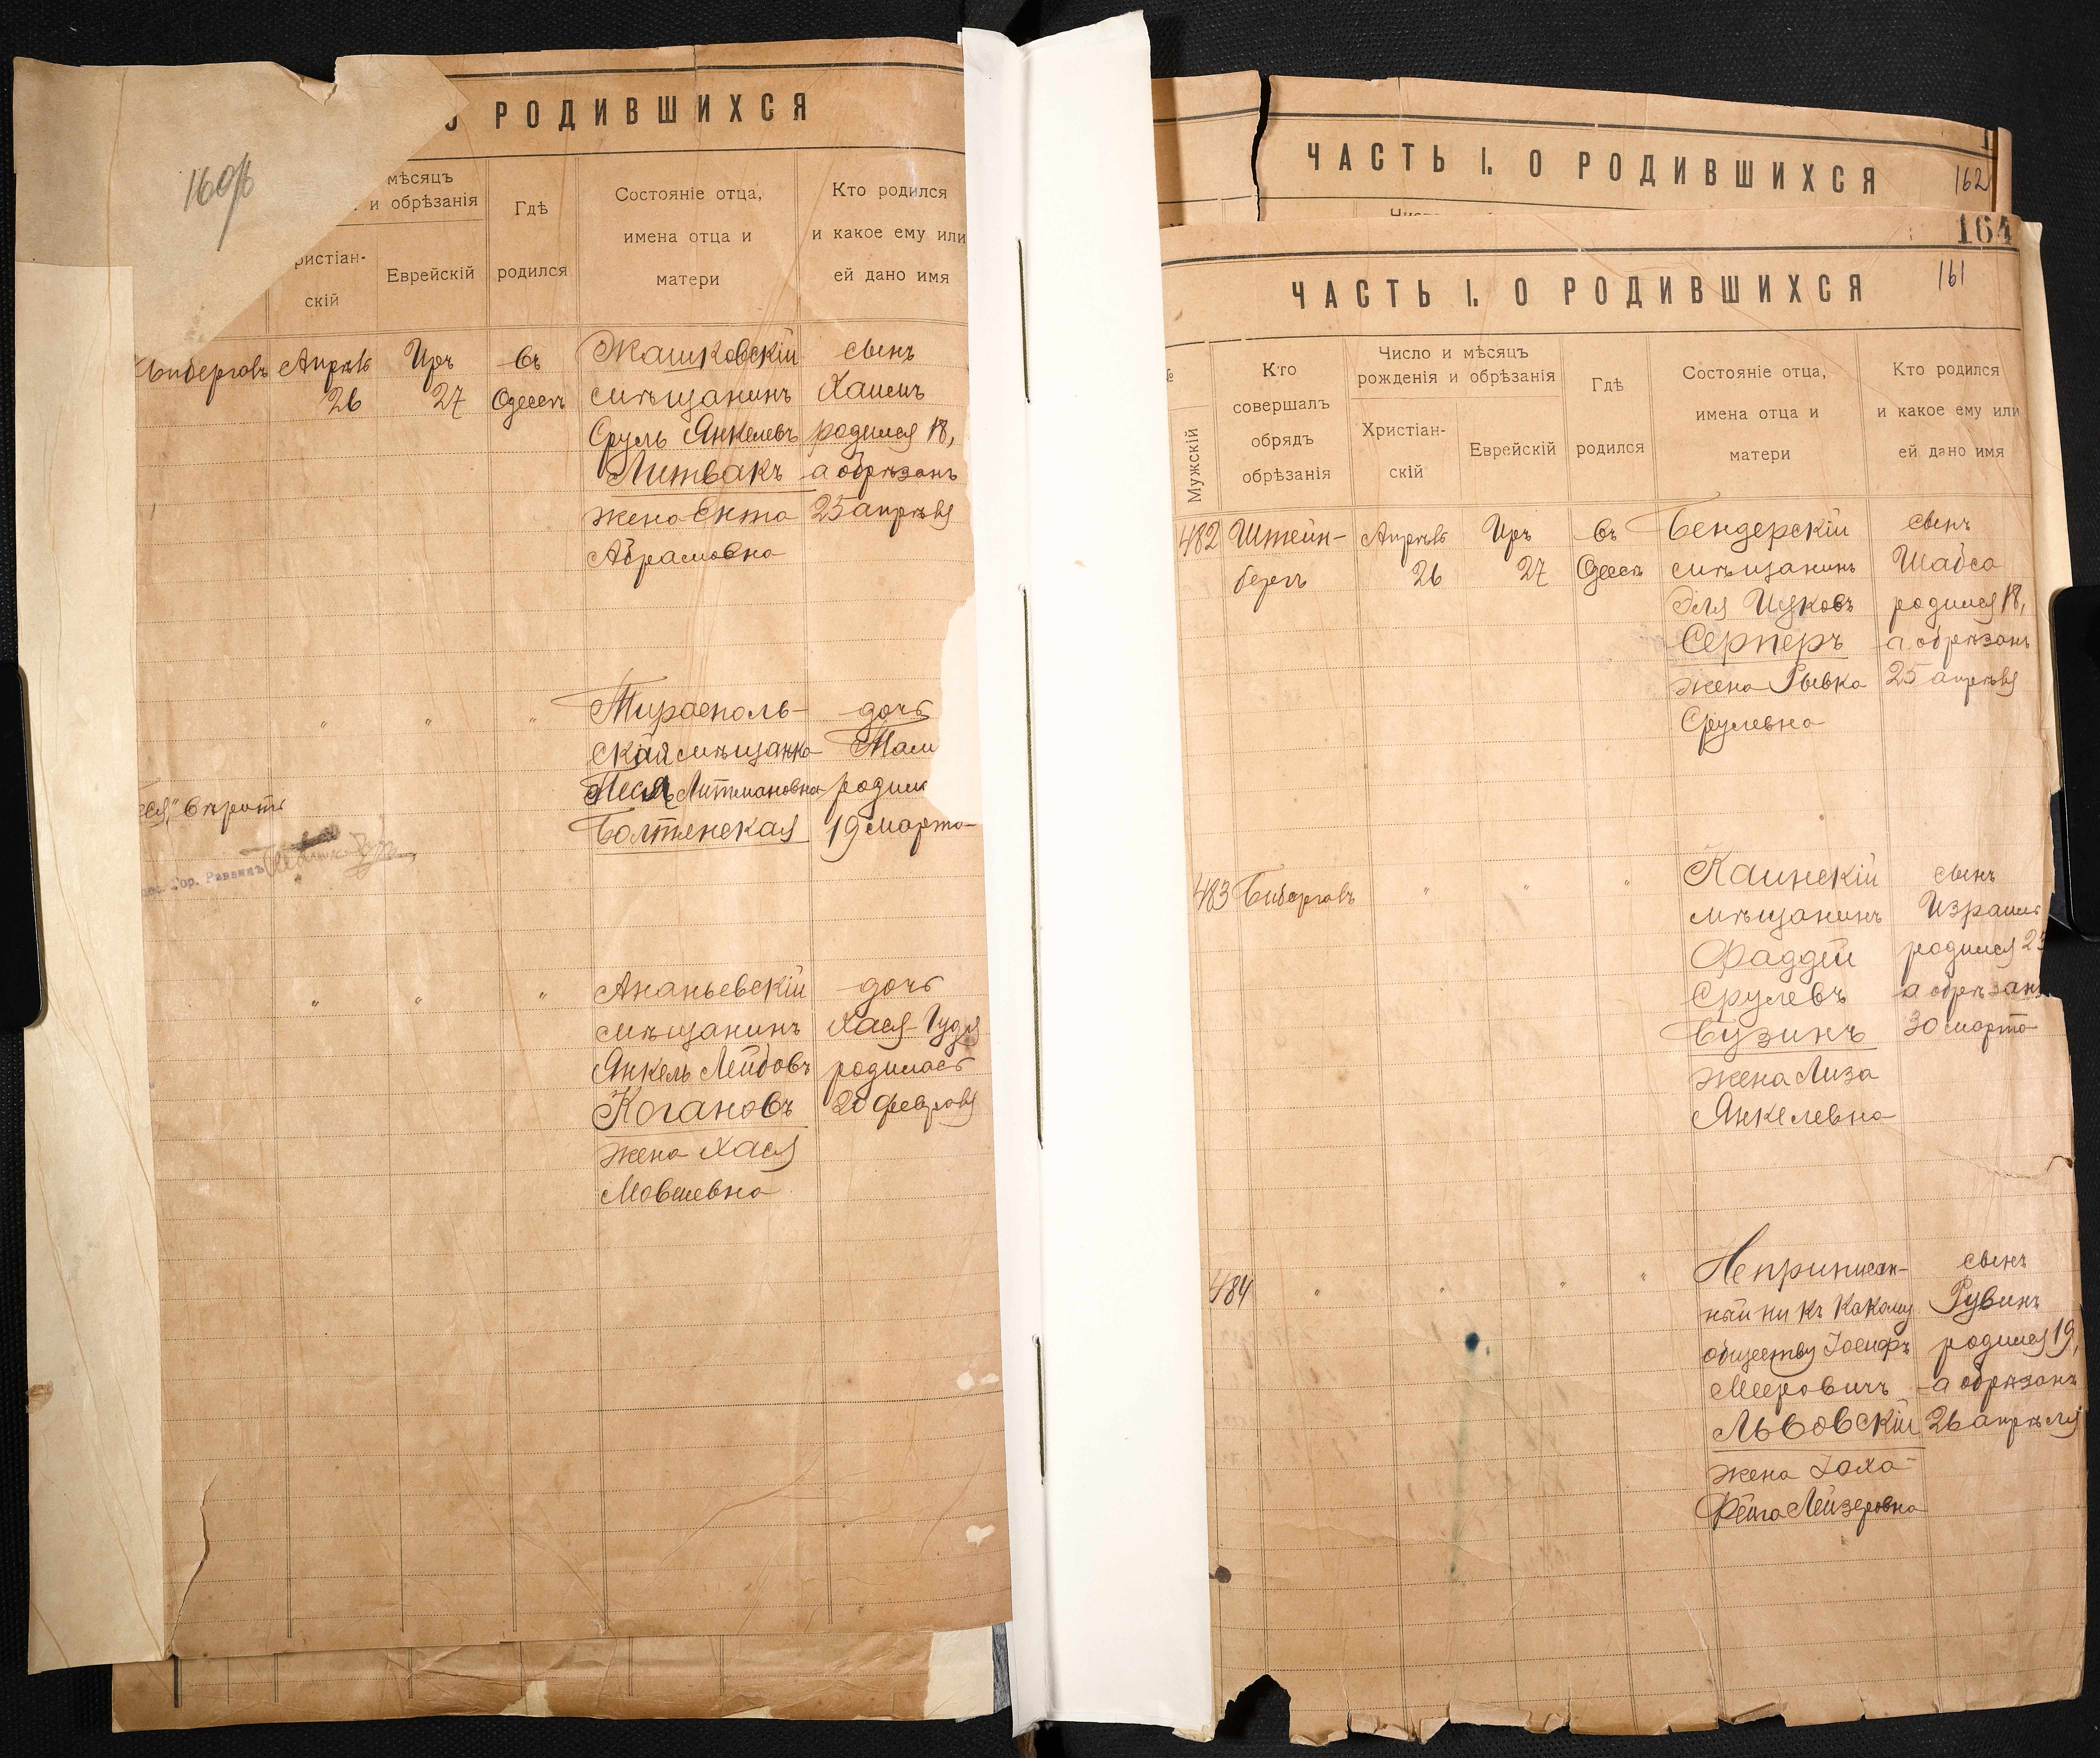 160/б
РОДИВШИХСЯ
мѣсяцъ
и обрѣзанія
Гдѣ
родился
ристіан-
скій
Еврейскій
Состояніе отца,
имена отца и
матери
Кто родился
и какое ему или
ей дано имя
Апрѣль
26
Иръ
27
въ
Одессѣ
Жашковскій
мѣщанинъ
Сруль Янкелевъ
Литвакъ
жена Ента
Абрамовна
сынъ
Хаимъ
родился 18,
а обрѣзанъ
25 апрѣля
" " "
Тирасполь-
ская мѣщанка
Песя Литмановна
Болтянская
дочь
родил
19 марта
вѣрить
Гор. Раввинъ
" " "
Ананьевскій
мѣщанинъ
Янкель Лейбовъ
Когановъ
жена Хася
Мовшевна
дочь
Хася-Гудя
родилась
28 февраля
ЧАСТЬ I. О РОДИВШИХСЯ
162
164
161
ЧАСТЬ I. О РОДИВШИХСЯ
№
Мужскій
Кто
совершалъ
обрядъ
обрѣзанія
Число и мѣсяцъ
рожденія и обрѣзанія
Христіан-
скій
Еврейскій
Гдѣ
родился
Состояніе отца,
имена отца и
матери
Кто родился
и какое ему или
ей дано имя
482
Штейн-
бергъ
Апрѣль
26
Иръ
27
въ
Одессѣ
Бендерскій
мѣщанинъ
Эля Ицковъ
Серперъ
жена Рывка
Срулевна
сынъ
Шабса
родился 18,
а обрѣзанъ
25 апрѣля
483
Бибергалъ
" " "
Каинскій
мѣщанинъ
Фаддей
Срулевъ
Бузинъ
жена Лиза
Янкелевна
сынъ
Израиль
родился 23
а обрѣзанъ
30 марта
484
" " " "
Неприписан-
ный ни къ какому
обществу Іосифъ
Мееровичъ
Львовскій
жена Іоха-
Фейга Лейзеровна
сынъ
Рувинъ
родился 19,
а обрѣзанъ
26 апрѣля